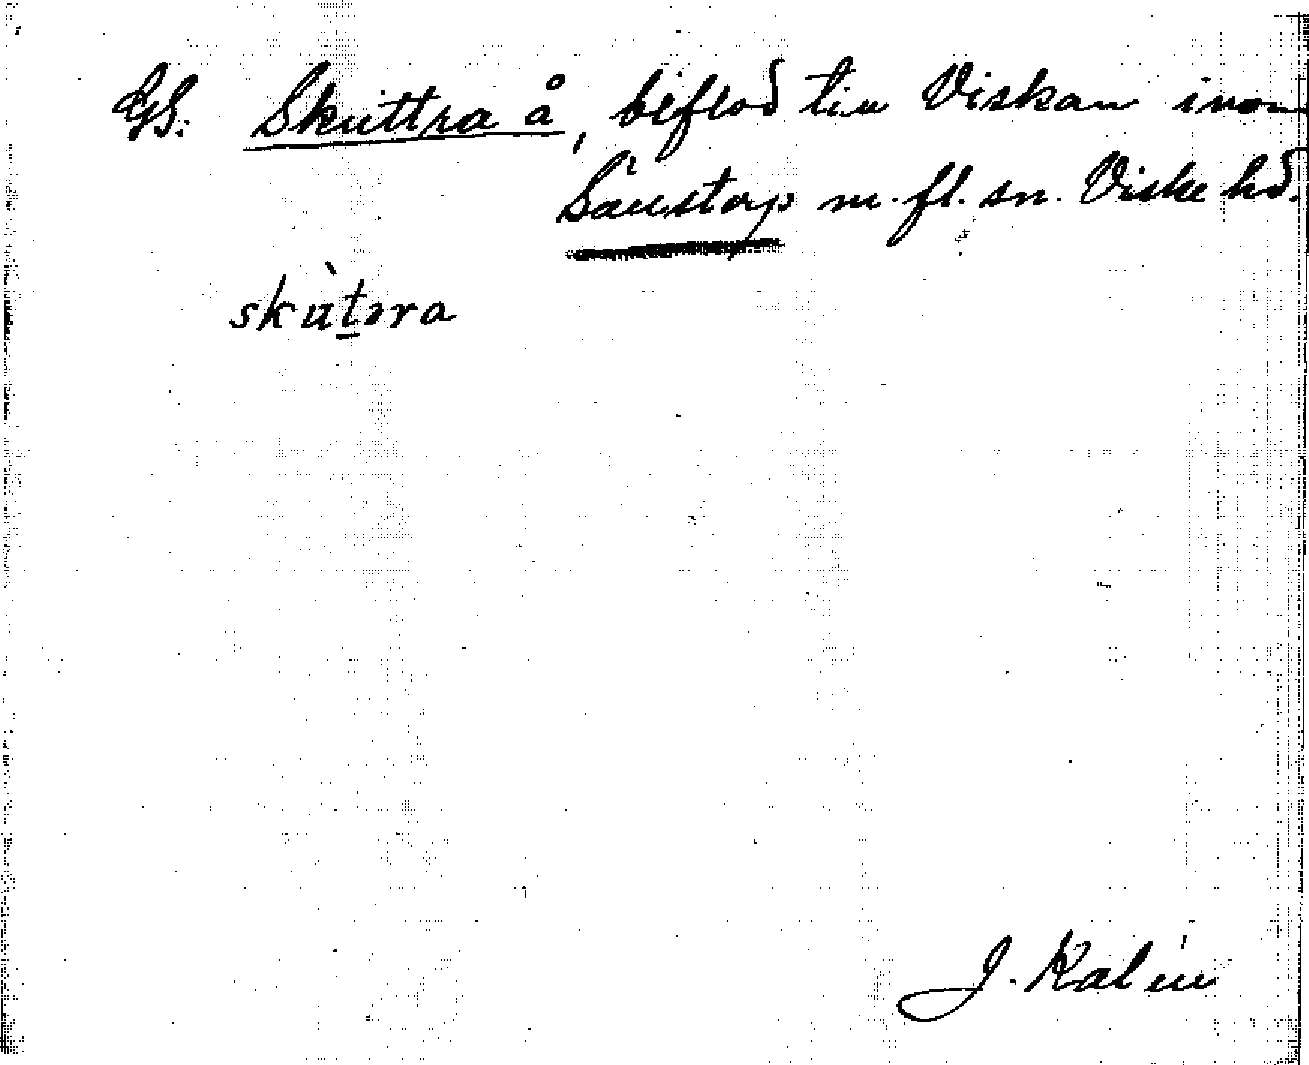 GS. Skuttra å, biflod till Viskan inom
Sällstorp m. fl. sn. Viske hd.
skùtəra
J. Kalén